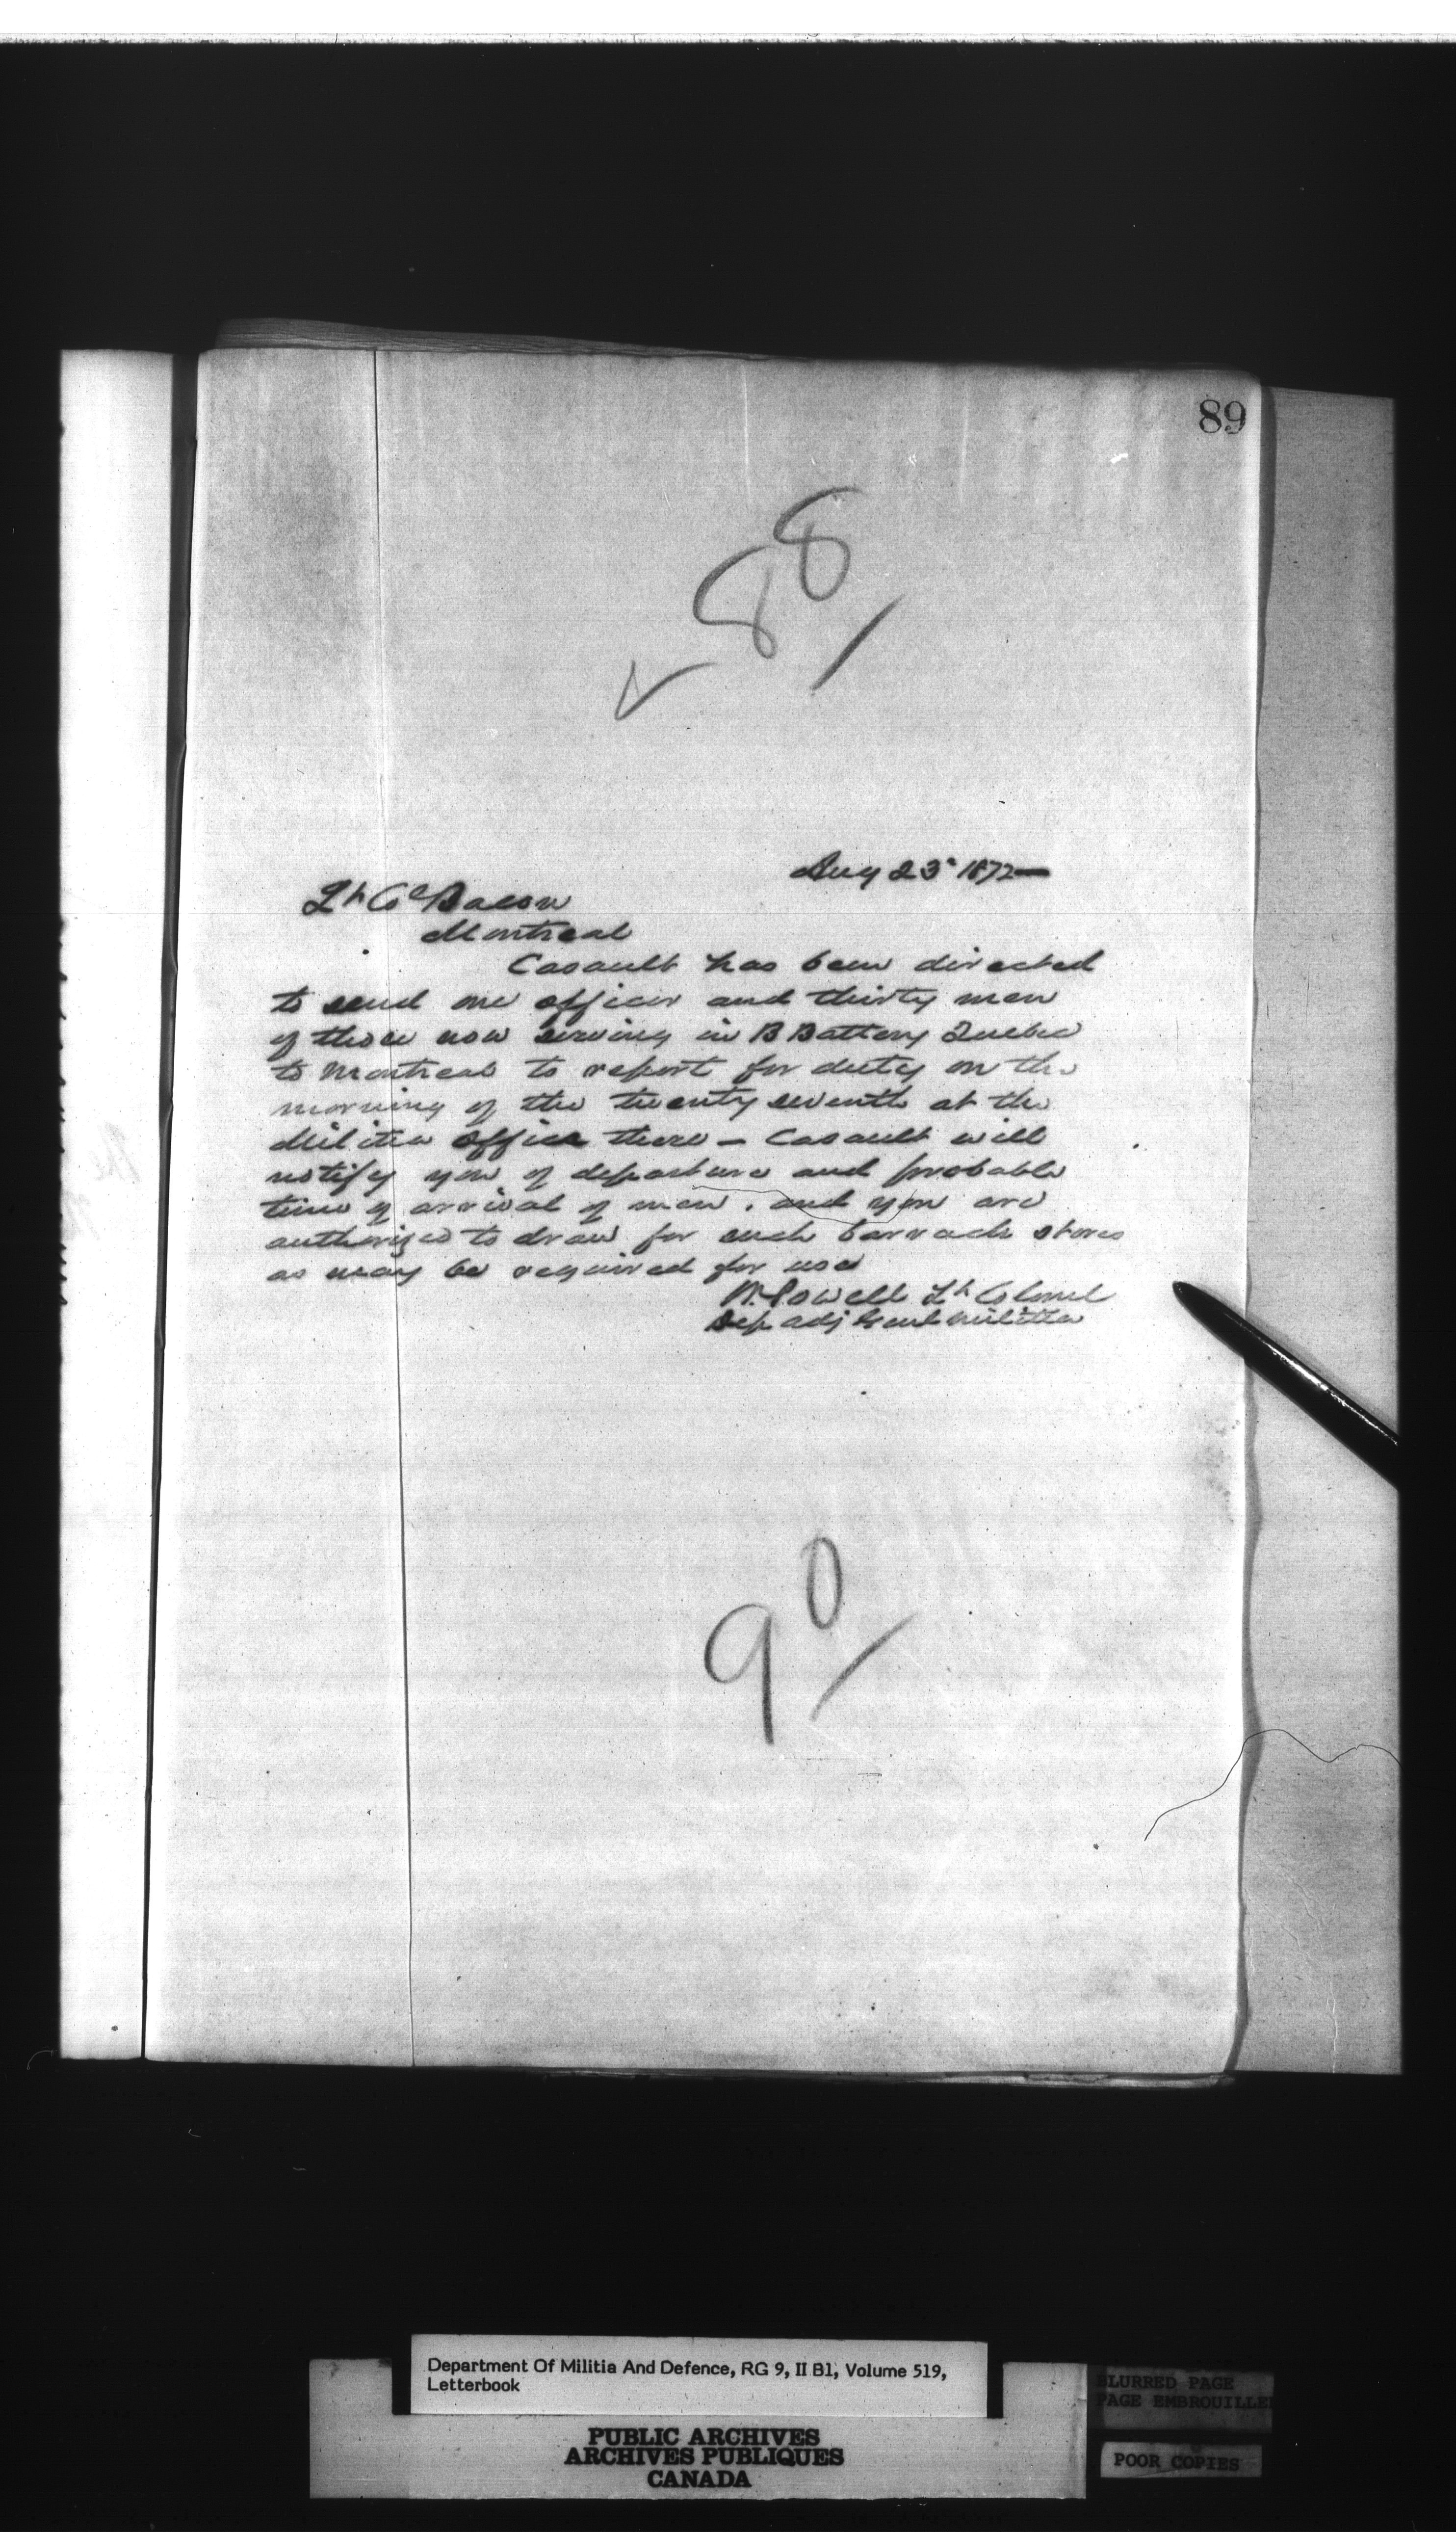 89
88/
Aug 23d 1872—
Lt Col Bacon
Montreal
Casault has been directed
to send one officer and thirty men
of those now serving in B Battery Quebec
to Montreal to report for duty on the
morning of the twenty seventh at the
Militia office there — Casault will
notify you of departure and probable
time of arrival of men. and you are
authorized to draw for such barrack stores
as may be required for use
W. Powell Lt Colonel
Dep Adj Genl Militia
90/
Department Of Militia And Defence, RG 9, II B1, Volume 519,
Letterbook
PUBLIC ARCHIVES
ARCHIVES PUBLIQUES
CANADA
BLURRED PAGE
PAGE EMBROUILLEE
POOR COPIES